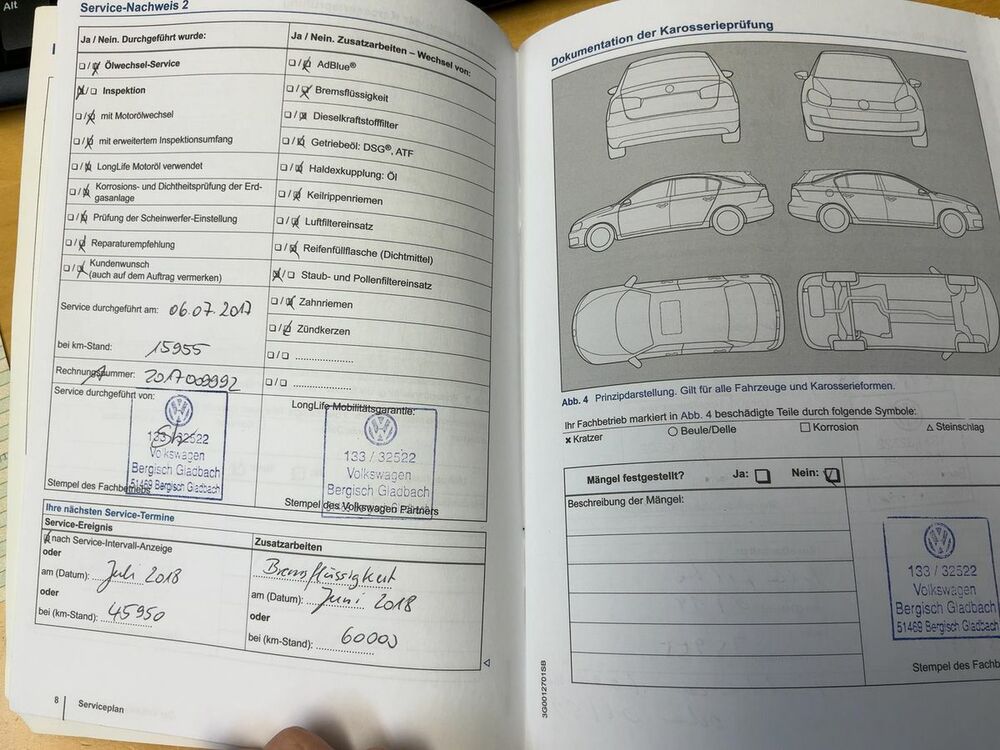 Alt
Service-Nachweis 2
Ja / Nein. Durchgeführt wurde:
Ölwechsel-Service
Inspektion
mit Motorölwechsel
mit erweitertem Inspektionsumfang
LongLife Motoröl verwendet
Korrosions- und Dichtheitsprüfung der Erd-
gasanlage
Prüfung der Scheinwerfer-Einstellung
Reparaturempfehlung
Kundenwunsch
(auch auf dem Auftrag vermerken)
Service durchgeführt am: 06.07.2017
bei km-Stand: 15955
Rechnungsnummer: 2017009992
Service durchgeführt von:
133/32522
Volkswagen
Bergisch Gladbach
51469 Bergisch Gladbach
Stempel des Fachbetriebs
Ja / Nein. Zusatzarbeiten – Wechsel von:
AdBlue®
Bremsflüssigkeit
Dieselkraftstofffilter
Getriebeöl: DSG®, ATF
Haldexkupplung: Öl
Keilrippenriemen
Luftfiltereinsatz
Reifenfüllflasche (Dichtmittel)
Staub- und Pollenfiltereinsatz
Zahnriemen
Zündkerzen
LongLife Mobilitätsgarantie:
133 / 32522
Volkswagen
Bergisch Gladbach
Stempel des Volkswagen Partners
Ihre nächsten Service-Termine
Service-Ereignis
nach Service-Intervall-Anzeige
oder
am (Datum): Juli 2018
oder
bei (km-Stand): 45950
Zusatzarbeiten
Bremsflüssigkeit
am (Datum): Juni 2018
oder
bei (km-Stand): 60000
8 Serviceplan
Dokumentation der Karosserieprüfung
Abb. 4 Prinzipdarstellung. Gilt für alle Fahrzeuge und Karosserieformen.
Ihr Fachbetrieb markiert in Abb. 4 beschädigte Teile durch folgende Symbole:
× Kratzer ○ Beule/Delle □ Korrosion △ Steinschlag
Mängel festgestellt? Ja: Nein:
Beschreibung der Mängel:
133 / 32522
Volkswagen
Bergisch Gladbach
51469 Bergisch Gladbach
Stempel des Fachb
3G0012701SB